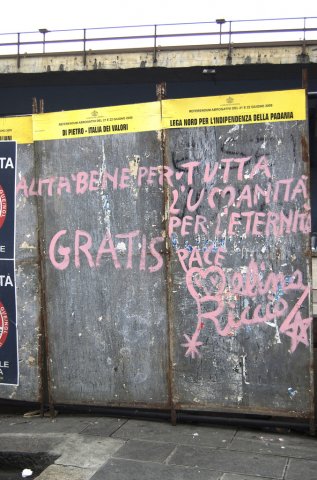 REFERENDUM ABROGATIVO DEL 21 E 22 GIUGNO 2009
DI PIETRO - ITALIA DEI VALORI
REFERENDUM ABROGATIVO DEL 21 E 22 GIUGNO 2009
LEGA NORD PER L'INDIPENDENZA DELLA PADANIA
ALITA BENE PER TUTTA
L'UMANITÀ
PER L'ETERNITÀ
GRATIS PACE
Melina
Riccio